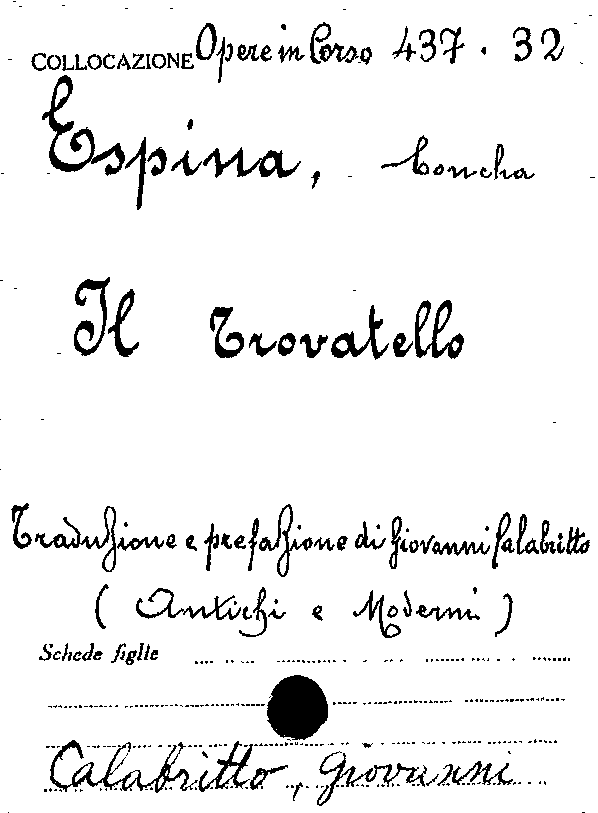 COLLOCAZIONE Opere in Corso 437 · 32
Espina, Concha
Il Trovatello
Traduzione e prefazione di Giovanni Calabritto
( Antichi e Moderni )
Schede figlie
Calabritto, Giovanni